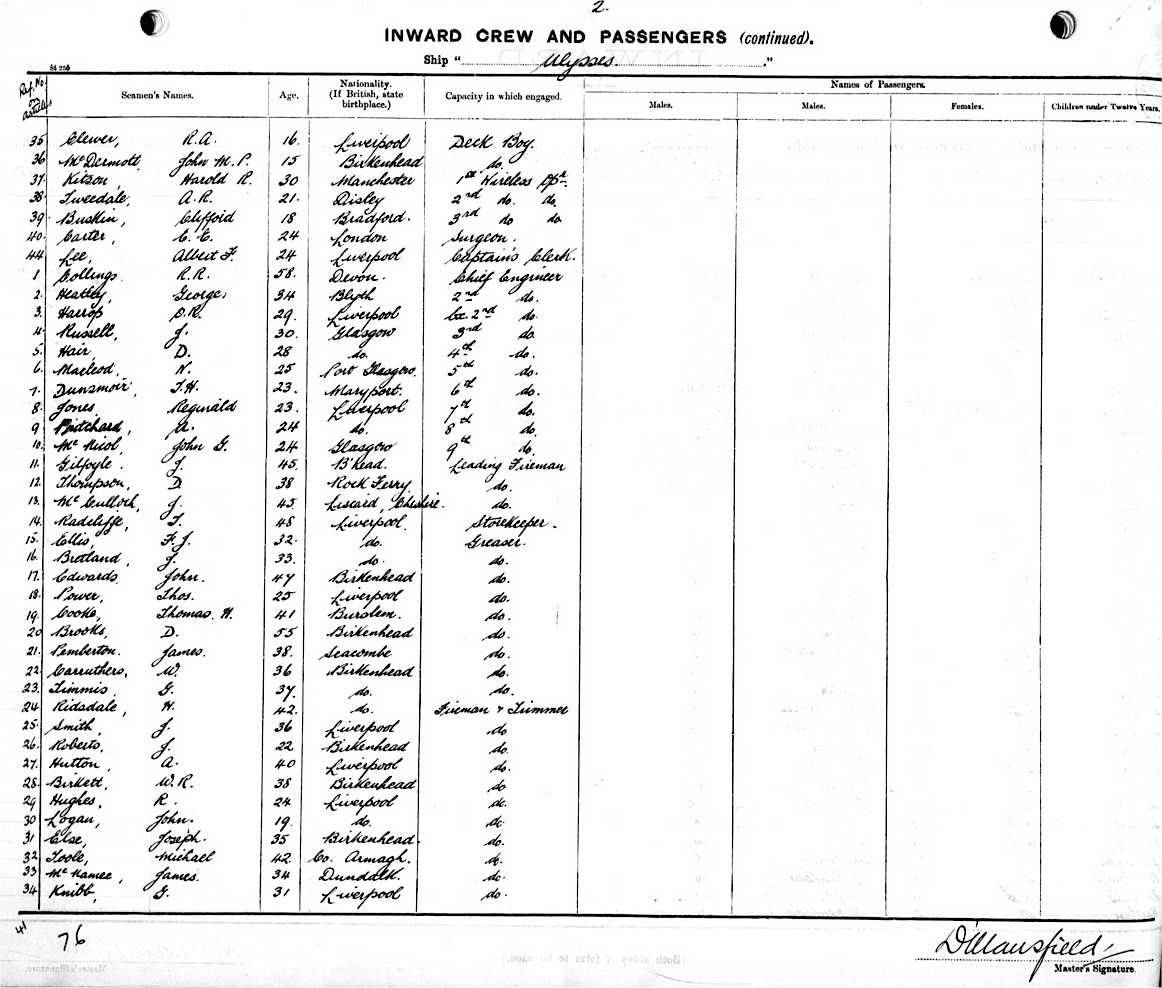 2.
INWARD CREW AND PASSENGERS (continued).
Ship " Ulysses. "
Ref. No. on articles
Seamen's Names. Age. Nationality. (If British, state birthplace.) Capacity in which engaged. Names of Passengers.
Males. Males. Females. Children under Twelve Years.
35 Clewer, R.A. 16. Liverpool Deck Boy.
36 McDermott, John M.P. 15 Birkenhead do.
37. Kitson, Harold R. 30 Manchester 1st Wireless Opr.
38. Tweedale, A.R. 21. Disley 2nd do. do.
39. Buskin, Clifford 18 Bradford. 3rd do do
40. Carter, C.E. 24 London Surgeon.
44 Lee, Albert F. 24 Liverpool Captain's Clerk.
1 Collings. R.R. 58. Devon. Chief Engineer
2. Heatley, George. 34 Blyth 2nd do.
3. Harrop D.R. 29. Liverpool Ex. 2nd do.
4. Russell, J. 30. Glasgow 3rd do.
5. Hair, D. 28 do. 4th do.
6. Macleod, N. 25 Port Glasgow. 5th do.
7. Dunsmoir, T.H. 23. Maryport. 6th do.
8. Jones, Reginald 23. Liverpool 7th do.
9 Pritchard, A. 24 do. 8th do.
10. McNicol, John G. 24 Glasgow 9th do.
11. Gilfoyle. J. 45. B'head. Leading Fireman
12. Thompson, D 38 Rock Ferry do.
13. McCulloch, J. 45 Liscard, Cheshire. do.
14. Radcliffe, T. 48 Liverpool. Storekeeper.
15. Ellis, F.J. 32. do. Greaser.
16. Bretland, J. 33. do. do.
17. Edwards, John. 47 Birkenhead do.
18. Power, Thos. 25 Liverpool do.
19. Cooke, Thomas. H. 41 Burslem. do.
20 Brooks, D. 55 Birkenhead do.
21. Pemberton. James. 38. Seacombe do.
22. Carruthers, W. 36 Birkenhead do.
23. Timmis G. 37 do. do.
24 Ridsdale, H. 42. do. Fireman & Trimmer
25. Smith, J. 36 Liverpool do
26. Roberts, J. 22 Birkenhead do.
27. Hutton, A. 40 Liverpool do.
28. Birkett, W.R. 38 Birkenhead do
29 Hughes, R. 24 Liverpool do.
30 Logan, John. 19. do. do
31 Else, Joseph. 35 Birkenhead. do.
32 Toole, Michael 42. Co. Armagh. do.
33 McNamee, James. 34 Dundalk. do.
34 Knibb, G. 31 Liverpool do.
41
76
Master's Signature.